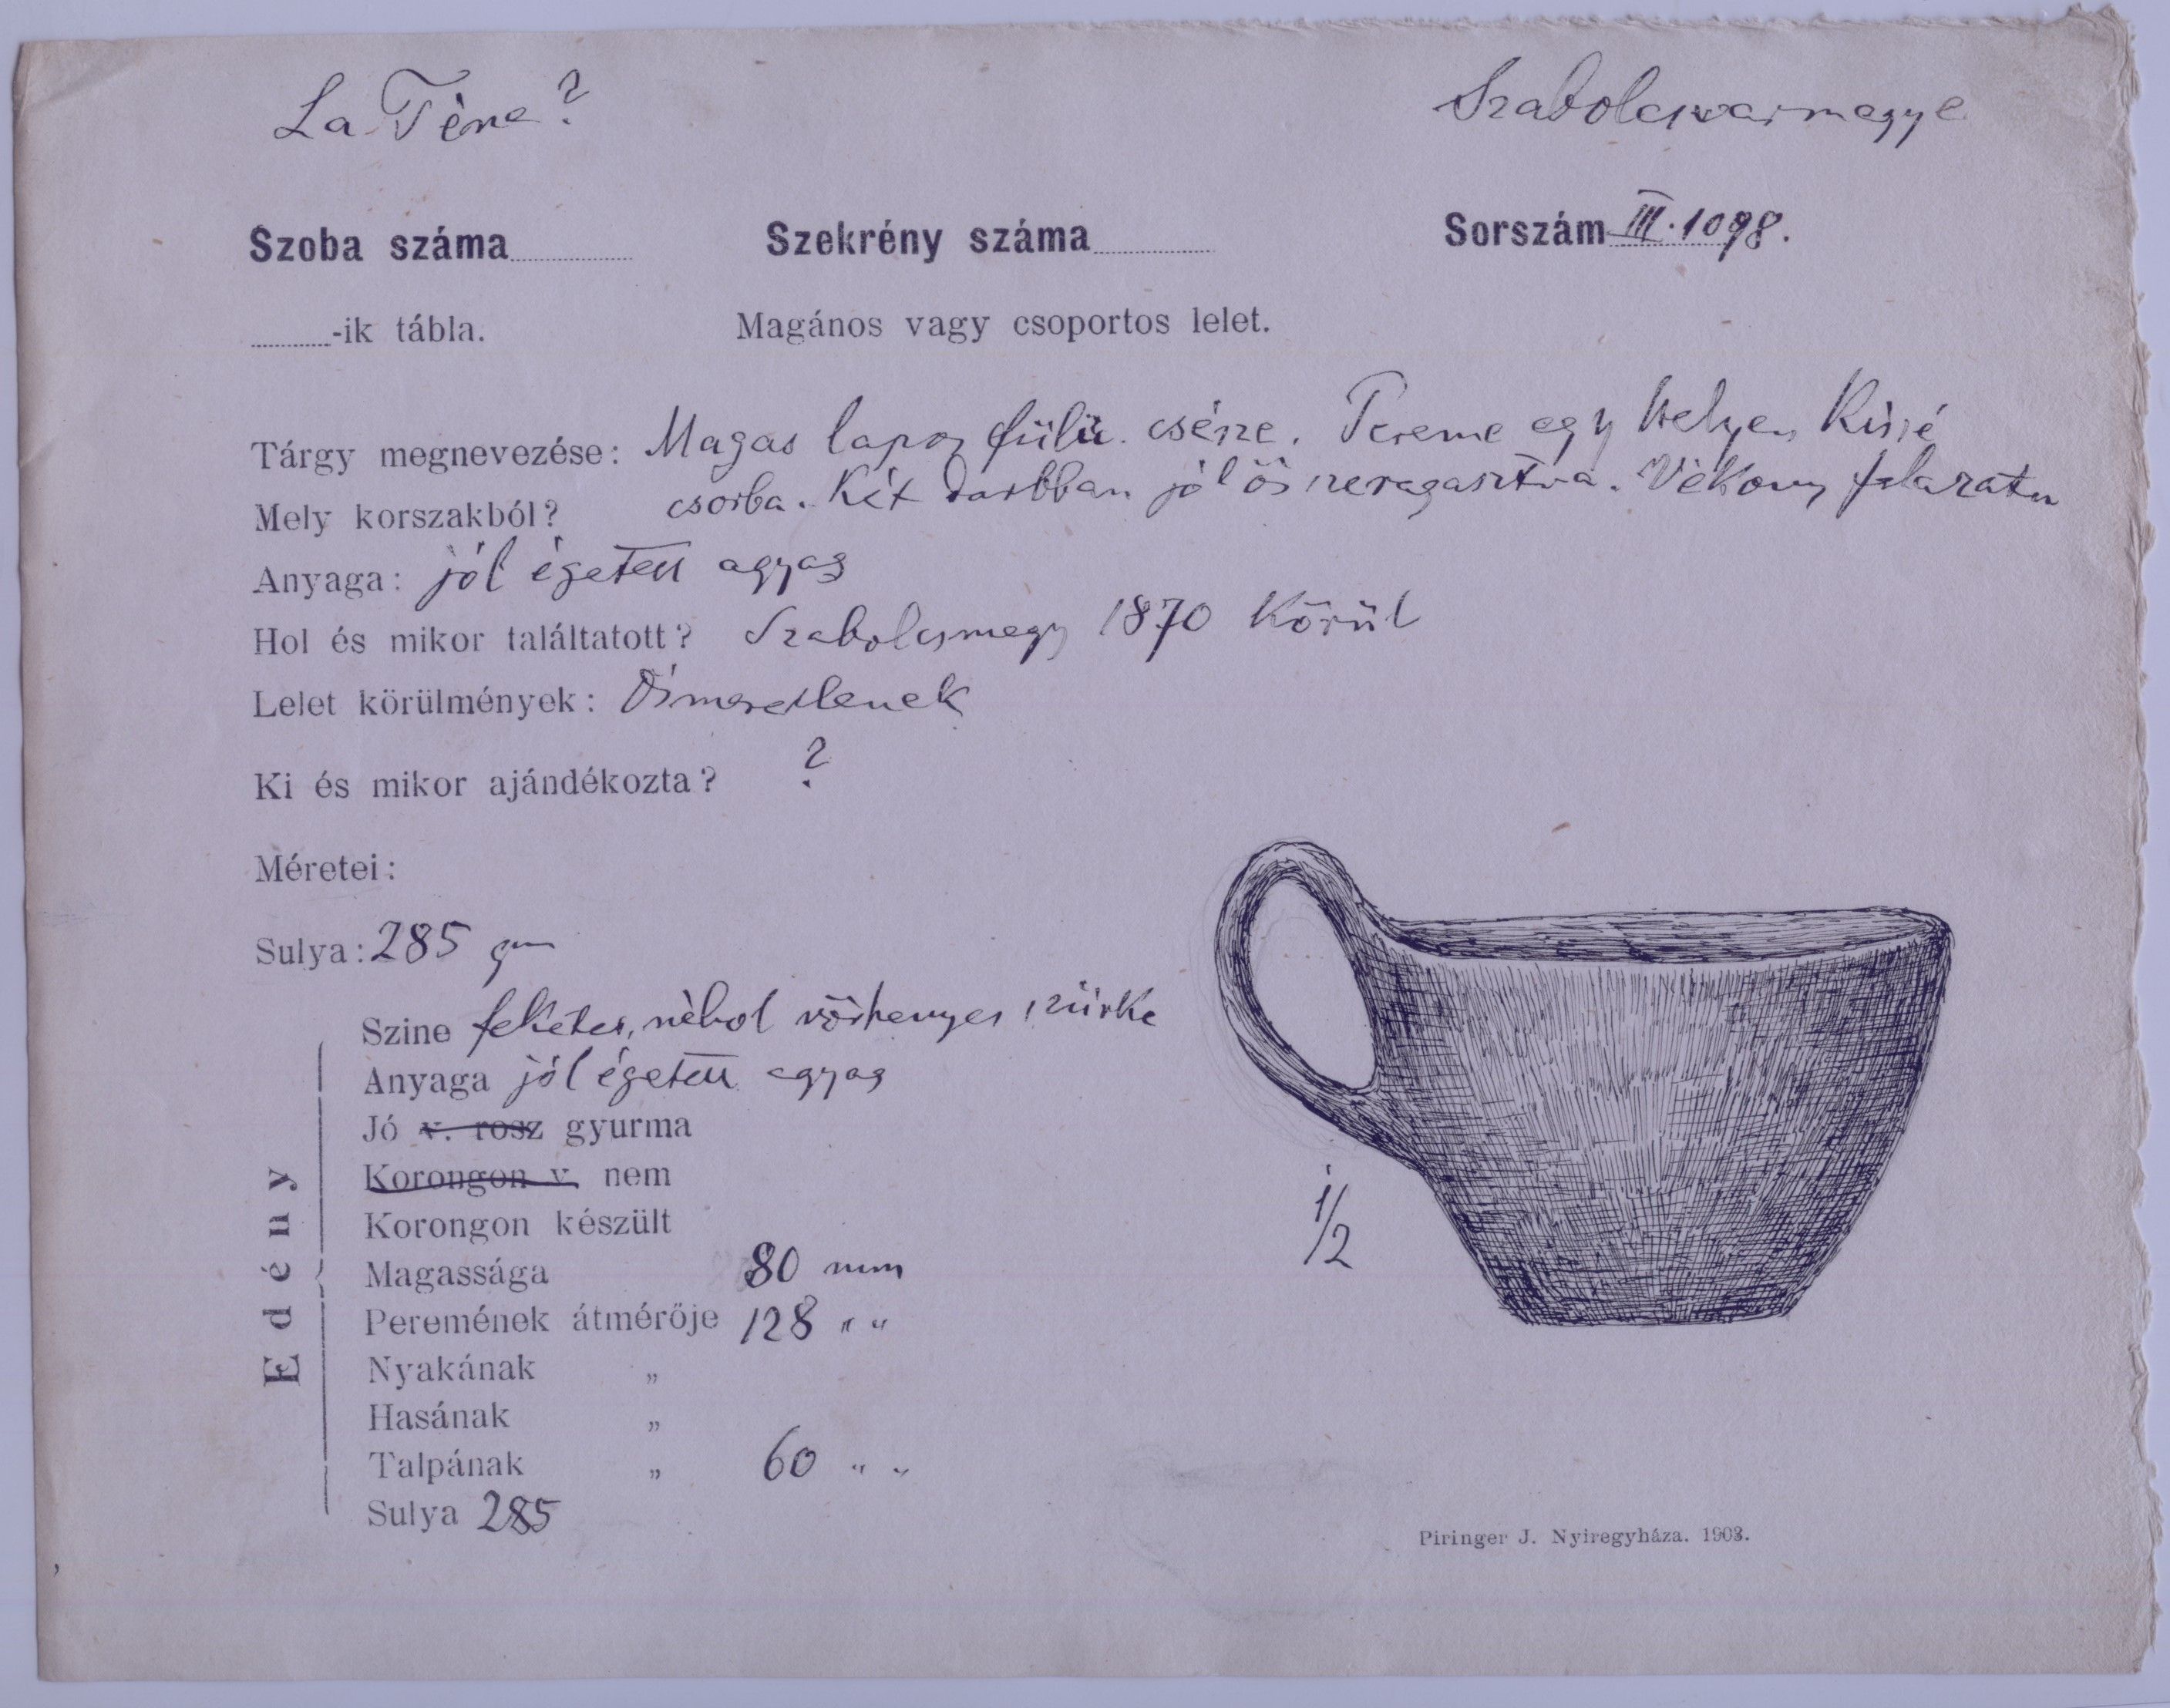 La Tène?
Szabolcsvármegye
Szoba száma
Szekrény száma
Sorszám III. 1098.
-ik tábla.
Magános vagy csoportos lelet.
Tárgy megnevezése: Magas lapos fülü csésze. Pereme egy helyen kissé
Mely korszakból? csorba. Két darbban jól összeragasztva. Vékony falazatu
Anyaga: jól égetett agyag
Hol és mikor találtatott? Szabolcsmegy 1870 körül
Lelet körülmények: Ösmeretlenek
Ki és mikor ajándékozta? ?
Méretei:
Sulya: 285 gm
Edény
Szine feketes, néhol vörhenyes szürke
Anyaga jól égetett agyag
Jó v. rosz gyurma
Korongon v. nem
Korongon készült
Magassága 80 mm
Peremének átmérője 128 " "
Nyakának "
Hasának "
Talpának " 60 " "
Sulya 285
1/2
Piringer J. Nyiregyháza. 1903.